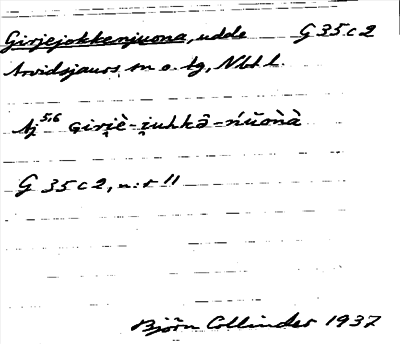 Girjejokkenjuona, udde G 35 c 2
Arvidsjaurs sn o. tg, Nbt l.
Aj 5,6 Girjè-juhkâ-ńŭonà
G 35 c 2, n:r 11
Björn Collinder 1937